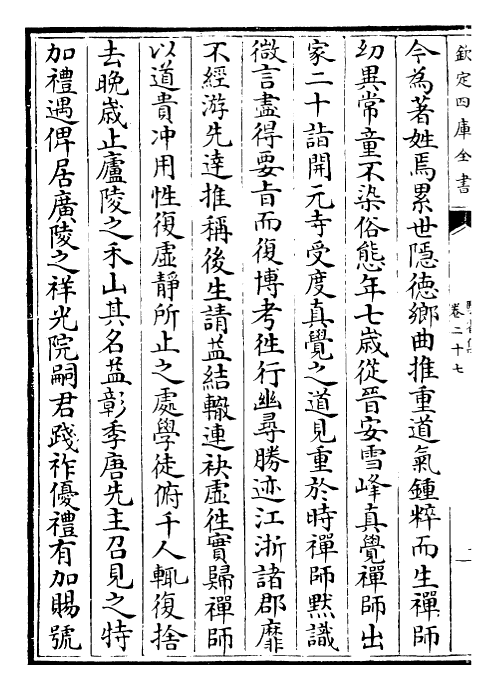 欽定四庫全書
卷二十七
今為著姓焉累世隱德鄉曲推重道氣鍾粹而生禪師
幼異常童不染俗態年七歲從晉安雪峰真覺禪師出
家二十詣開元寺受度真覺之道見重於時禪師黙識
微言盡得要旨而復博考徃行幽尋勝迹江浙諸郡靡
不經游先達推稱後生請益結轍連袂虛徃實歸禪師
以道貴冲用性復虛靜所止之處學徒俯千人輒復捨
去晚歲止廬陵之禾山其名益彰季唐先主召見之特
加禮遇俾居廣陵之祥光院嗣君踐祚優禮有加賜號